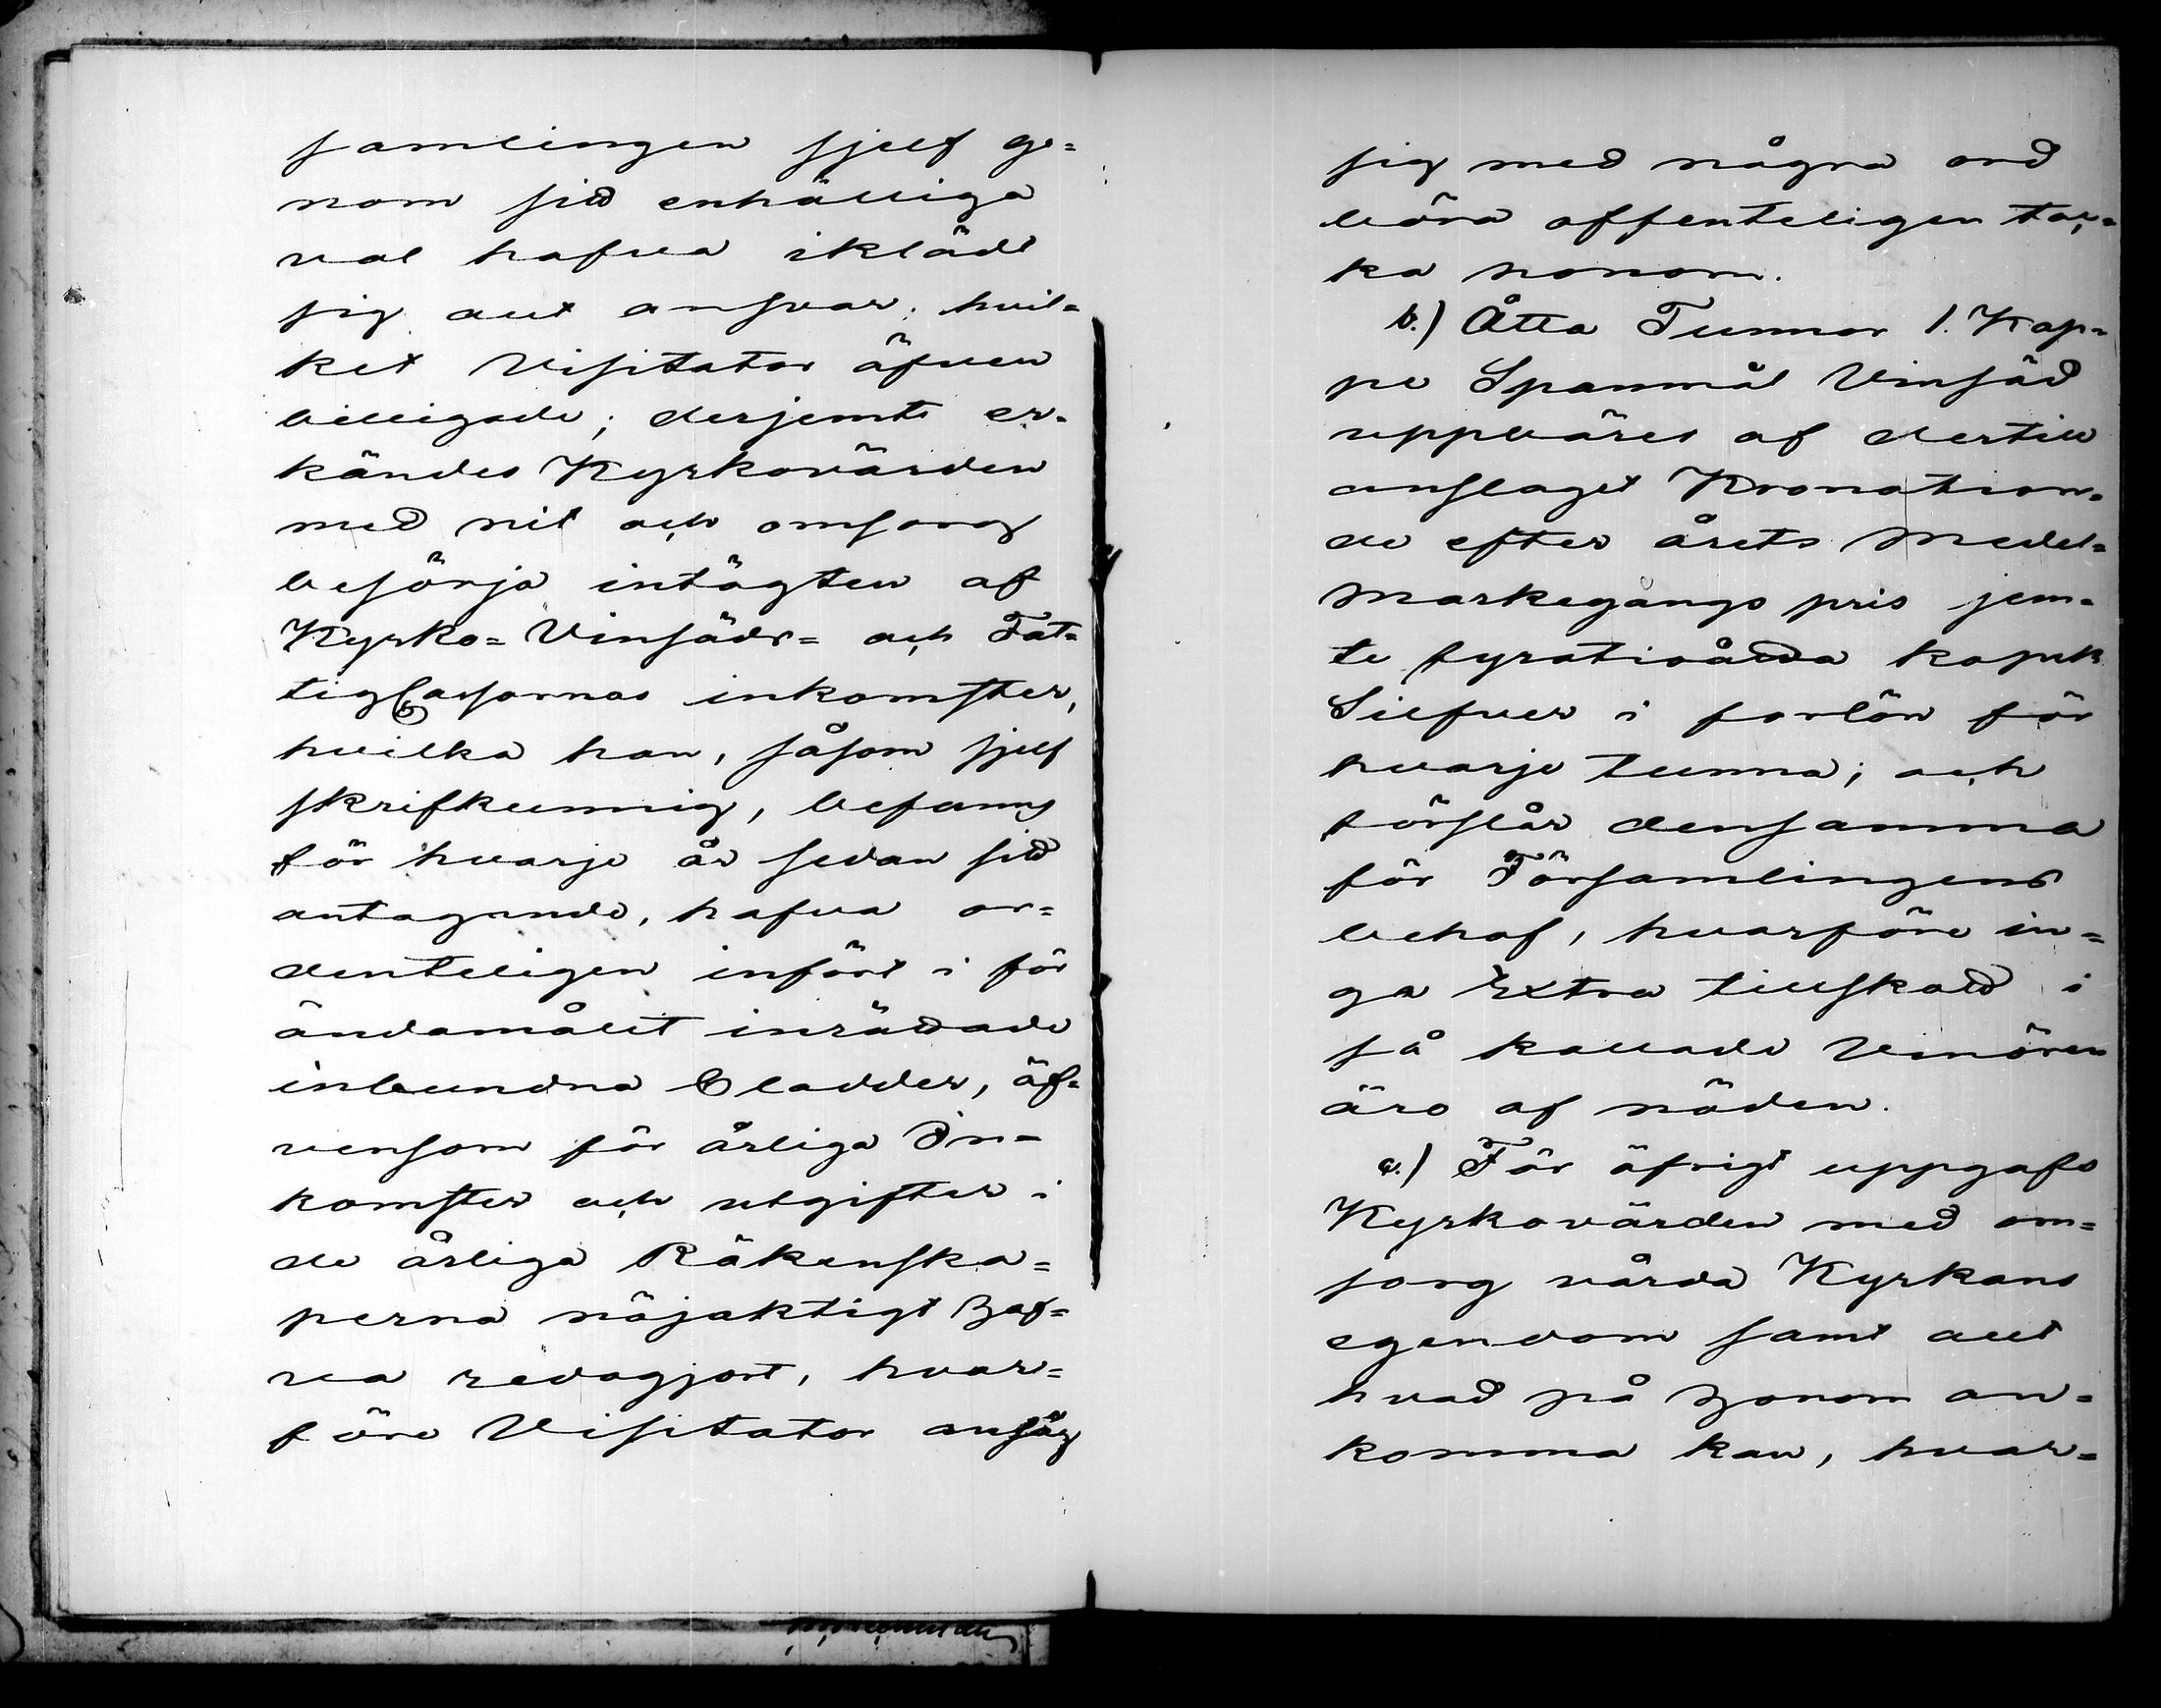 samlingen sjelf ge=
nom sitt enhälliga
val hafva iklädt
sig allt ansvar: hvil=
ket Visitator äfven
billigade; derjemte er=
kändes Kyrkovärden
med nit och omsorg
besörja intägten af
Kyrko= Vinsäds= och Fat=
tigCassornas inkomster,
hvilka han, såsom sjelf
skrifkunnig, befanns
för hvarje år sedan sitt
antagande, hafva or=
denteligen infört i för
ändamålet inrättade
inbundna Bladder, äf=
vensom för årliga In=
komster och utgifter i
de årliga Räkenska=
perna nöjaktigt haf=
va redogjort, hvar=
före Visitator ansåg
sig med några ord
böra offenteligen tac=
ka honom.
b.) Åtta Tunnor 1. Kap=
pe Spanmål Vinsäd
uppbäres af dertill
anslaget Kronotion=
de efter årets Medel=
Markegångs pris jem=
te fyratioåtta kopek
Silfver i forlön för
hvarje tunna; och
förslår densamma
för Församlingens
behof, hvarföre in=
ga Extra tillskott i
så kallade Vinören
äro af nöden.
c.) För öfrigt uppgafs
Kyrkovärden med om=
sorg vårda Kyrkans
egendom samt allt
hvad på honom an=
komma kan, hvar=